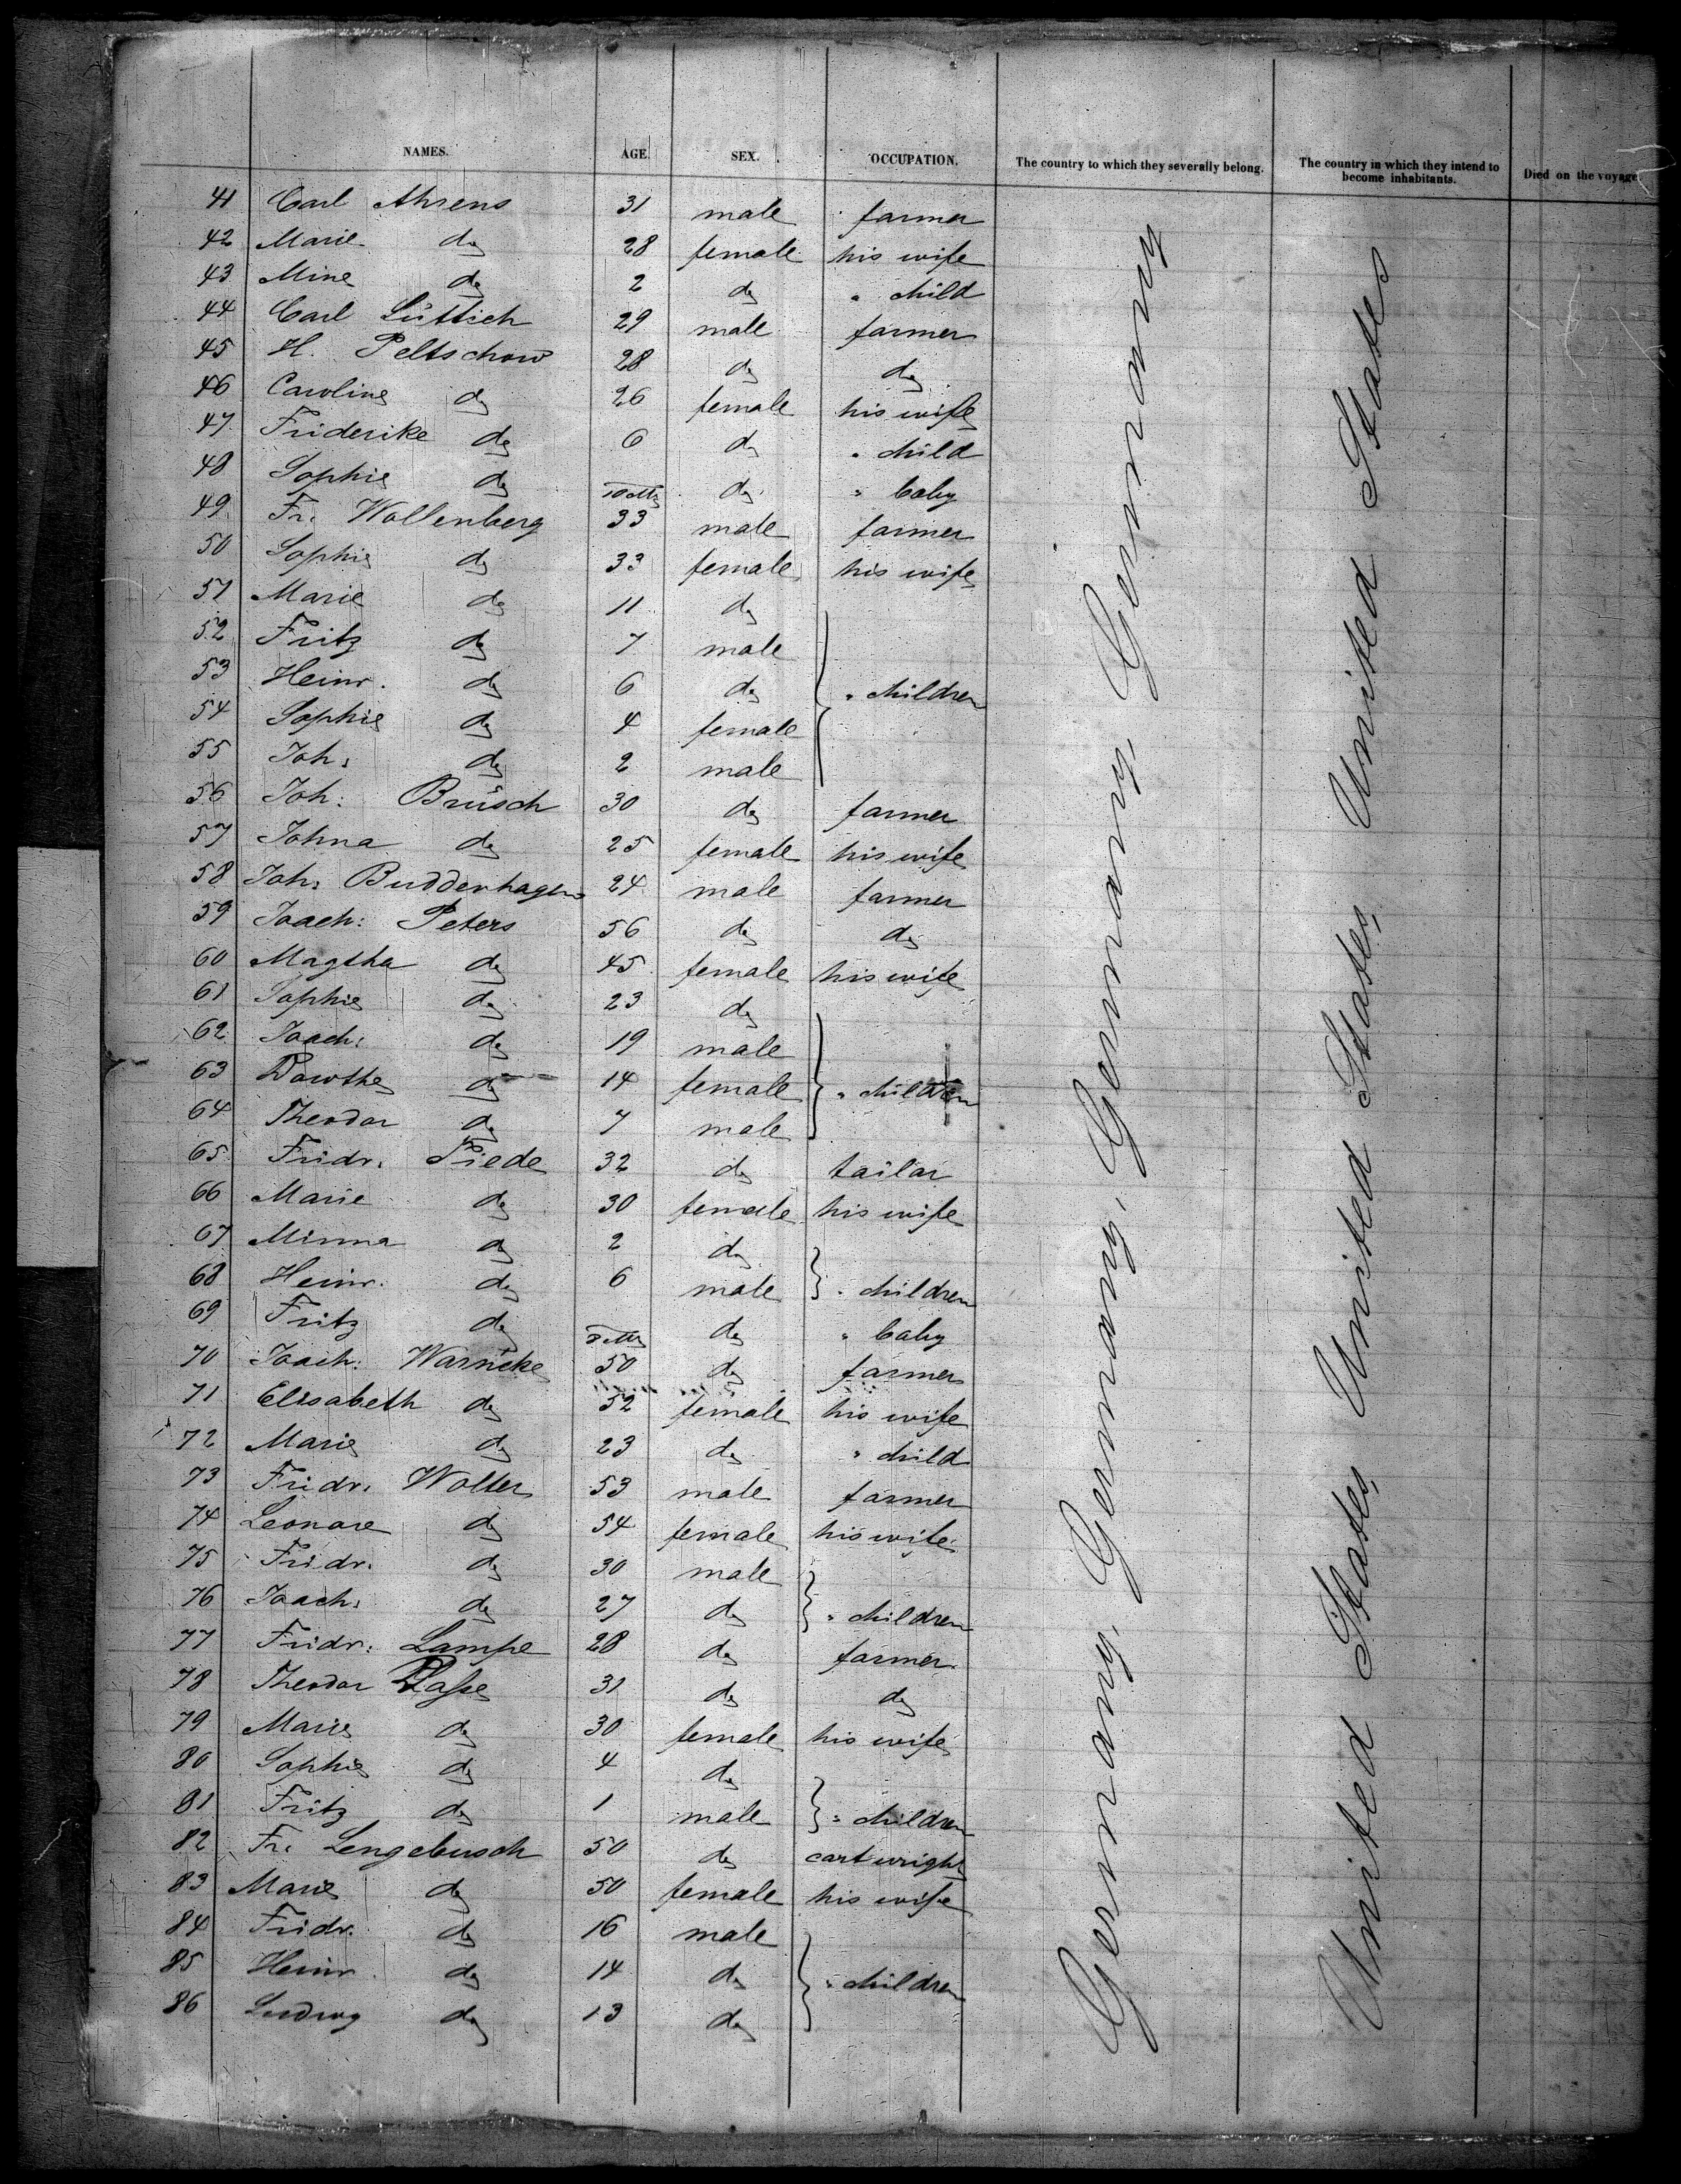 NAMES. AGE. SEX. OCCUPATION. The country to which they severally belong. The country in which they intend to become inhabitants. Died on the voyage
41 Carl Ahrens 31 male farmer
42 Marie do 28 female his wife
43 Mine do 2 do " child
44 Carl Lüttich 29 male farmer
45 H. Peltschow 28 do do
46 Caroline do 26 female his wife
47 Friderike do 6 do " child
48 Sophie do 10 Mts do " baby
49 Fr. Wollenberg 33 male farmer
50 Sophie do 33 female his wife
51 Marie do 11 do
52 Fritz do 7 male
53 Heinr. do 6 do " children
54 Sophie do 4 female
55 Joh: do 2 male
56 Joh: Brüsch 30 do farmer
57 Johna do 25 female his wife
58 Joh: Budderhagen 24 male farmer
59 Joach: Peters 56 do do
60 Magtha do 45 female his wife
61 Sophie do 23 do
62 Joach: do 19 male
63 Dorothe do 14 female " children
64 Theodor do 7 male
65 Fridr. Tiede 32 do tailor
66 Marie do 30 female his wife
67 Minna do 2 do
68 Heinr. do 6 male " children
69 Fritz do Mts do " baby
70 Joach: Warncke 50 do farmer
71 Elisabeth do 52 female his wife
72 Marie do 23 do " child
73 Fridr. Wolter 53 male farmer
74 Leonore do 54 female his wife
75 Fridr. do 30 male
76 Joach: do 27 do " children
77 Fridr: Lampe 28 do farmer
78 Theodor 31 do do
79 Marie do 30 female his wife
80 Sophie do 4 do
81 Fritz do 1 male " children
82 Fr: Lengebusch 50 do cartwright
83 Marie do 50 female his wife
84 Fridr. do 16 male
85 Heinr. do 14 do " children
86 Ludwig do 13 do
Germany, Germany, Germany, Germany
United States, United States, United States